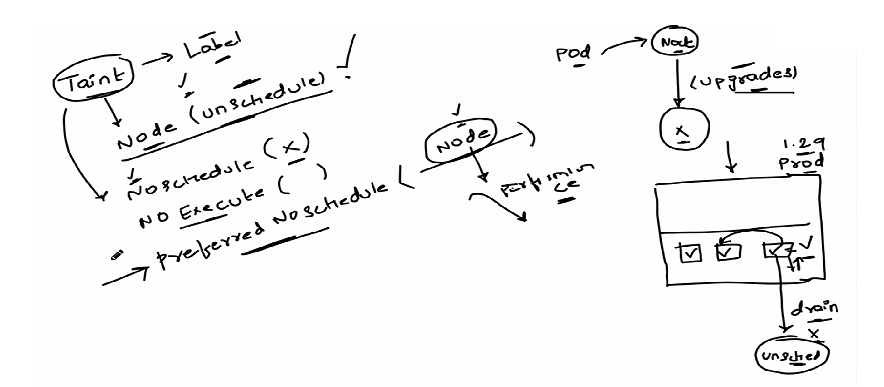 Taint → Label
Node (unschedule) !
Noschedule (x)
NO Execute ( )
→ preferred Noschedule ( Node )
performin
ce
pod → Node
(upgrades)
x
1.29
prod
drain
x
unsched